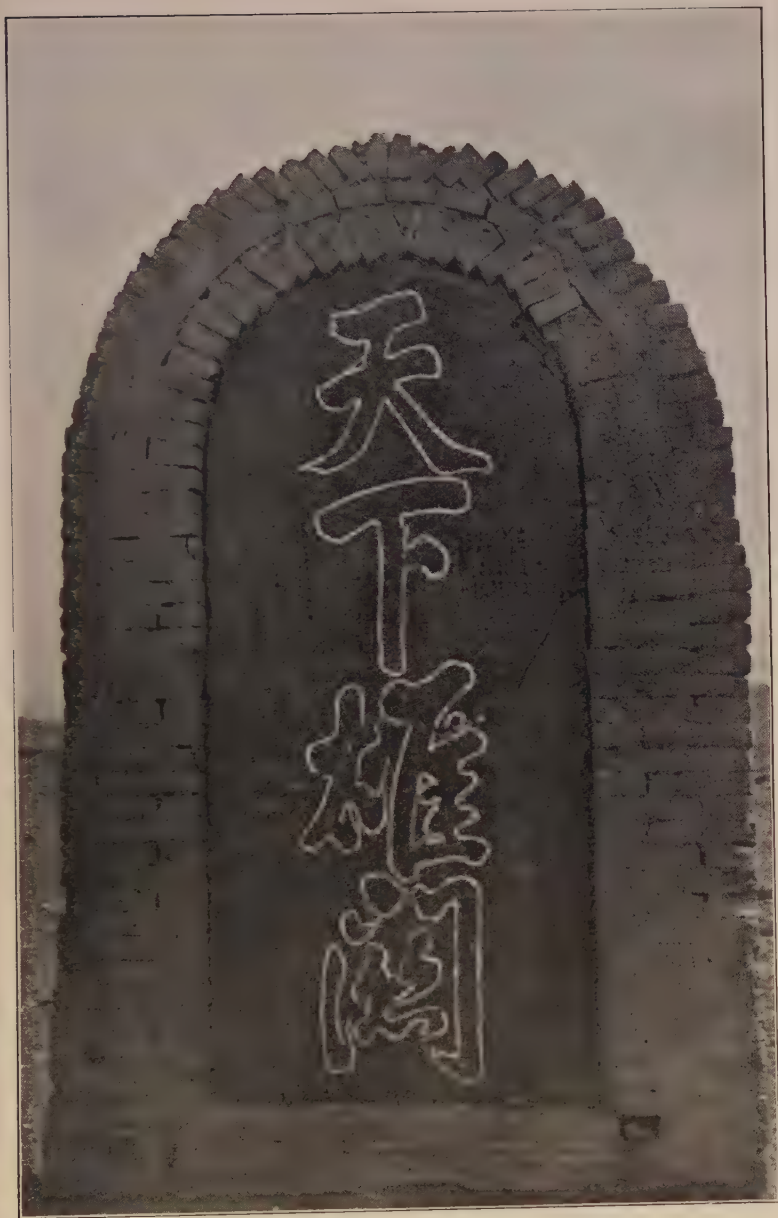 天下雄關